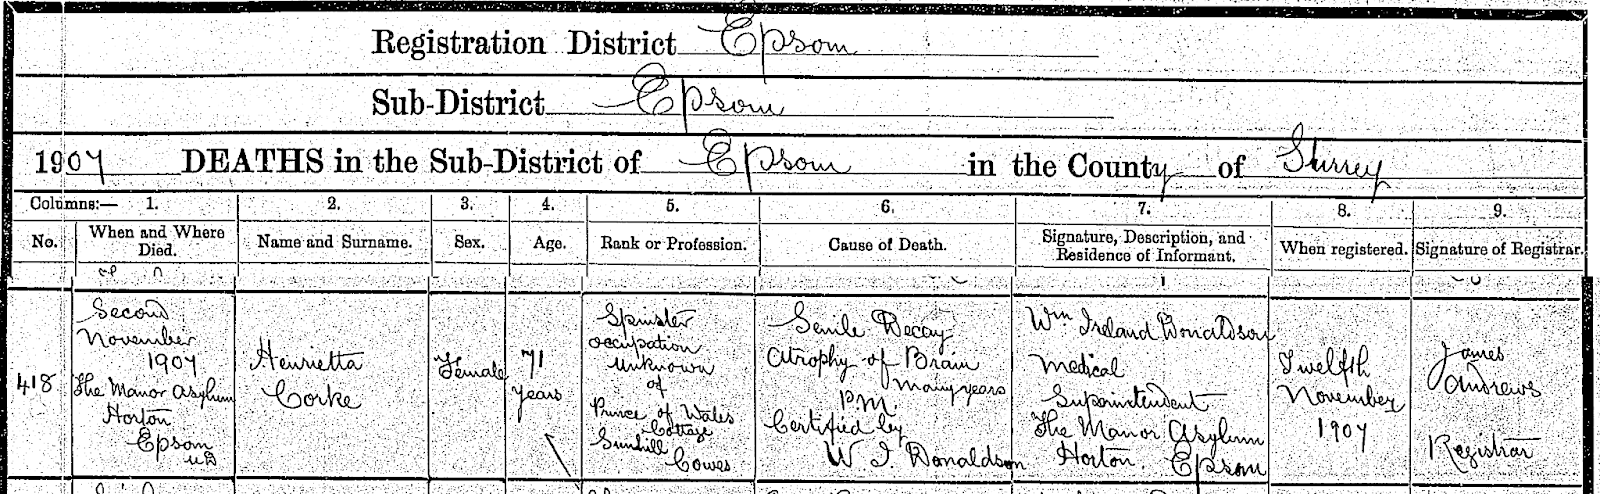 Registration District Epsom
Sub-District Epsom
1907 DEATHS in the Sub-District of Epsom in the County of Surrey
Columns:— 1. 2. 3. 4. 5. 6. 7. 8. 9.
No. When and Where Died. Name and Surname. Sex. Age. Rank or Profession. Cause of Death. Signature, Description, and Residence of Informant. When registered. Signature of Registrar.
418
Second
November
1907
The Manor Asylum
Horton
Epsom
UD
Henrietta
Corke
Female
71
years
Spinster
occupation
Unknown
of
Prince of Wales
Cottage
Sunhill
Cowes
Senile Decay
Atrophy of Brain
many years
P.M.
Certified by
W I Donaldson
Wm Ireland Donaldson
Medical
Superintendent
The Manor Asylum
Horton. Epsom
Twelfth
November
1907
James
Andrews
Registrar